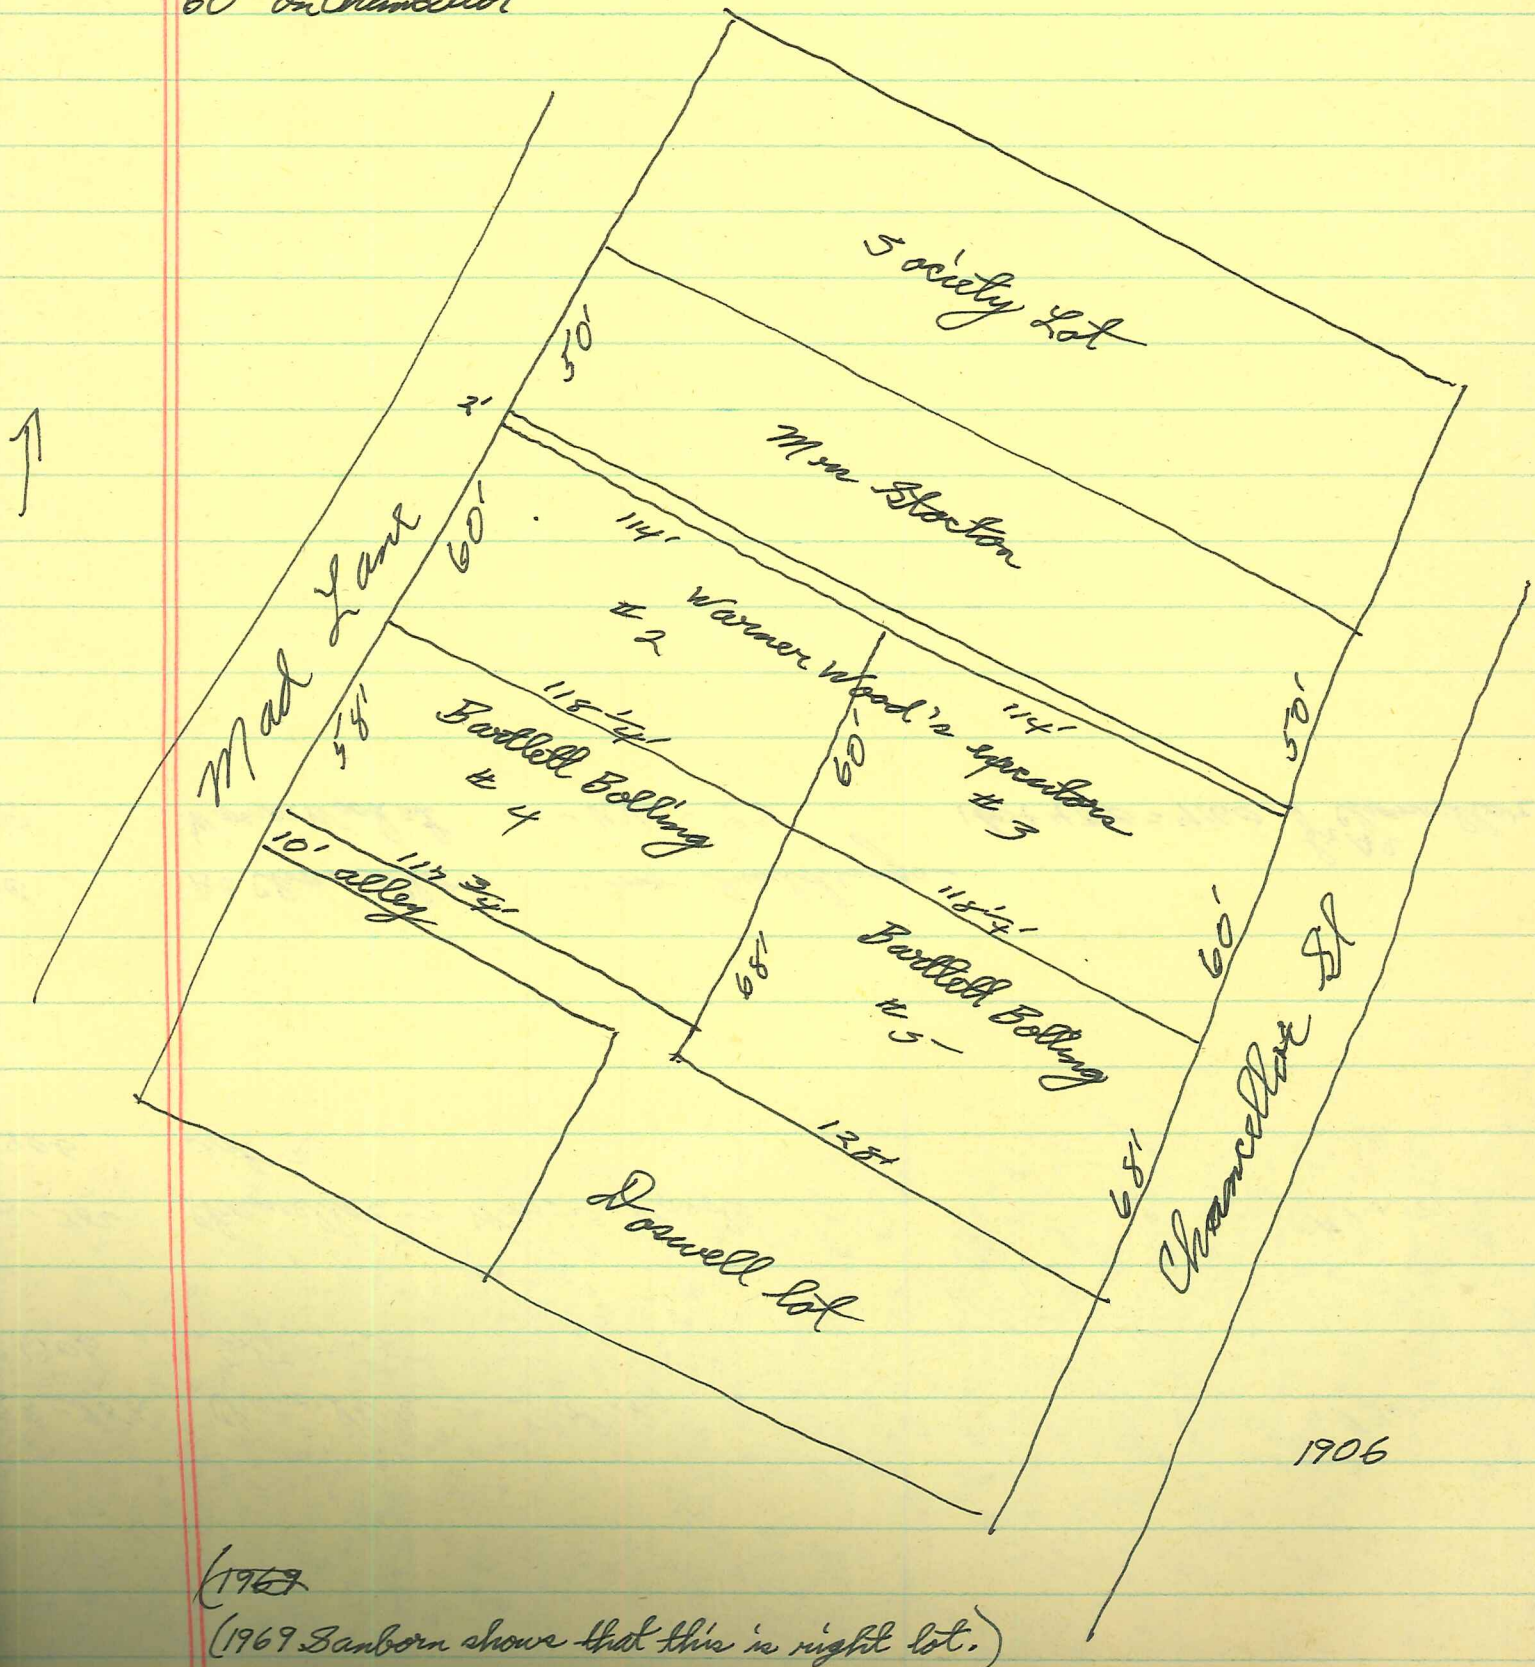 60' on Chancellor
Society Lot
50'
2'
Mrs Stockton
60'
114'
Mad Lane
# 2
Warner Wood's executors
114'
50'
# 3
60'
58'
118 1/4'
Bartlett Bolling
# 4
118 1/4'
60'
10' alley
117 3/4'
68'
Bartlett Bolling
# 5
Chancellor St
128'
68'
Doswell lot
1906
(1969
(1969 Sanborn shows that this is right lot.)